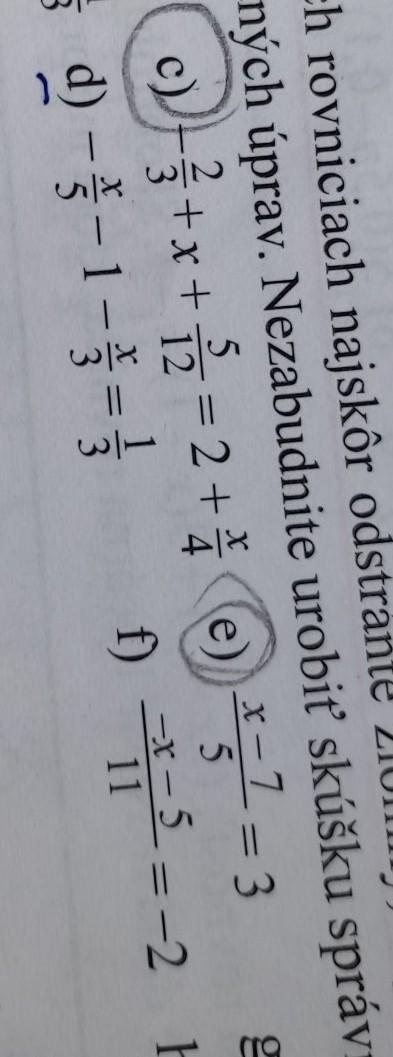 rovniciach najskôr odstráňte
úprav. Nezabudnite urobiť skúšku
c) -2/3 + x + 5/12 = 2 + x/4
e) (x - 7)/5 = 3
d) -x/5 - 1 - x/3 = 1/3
f) (-x - 5)/11 = -2